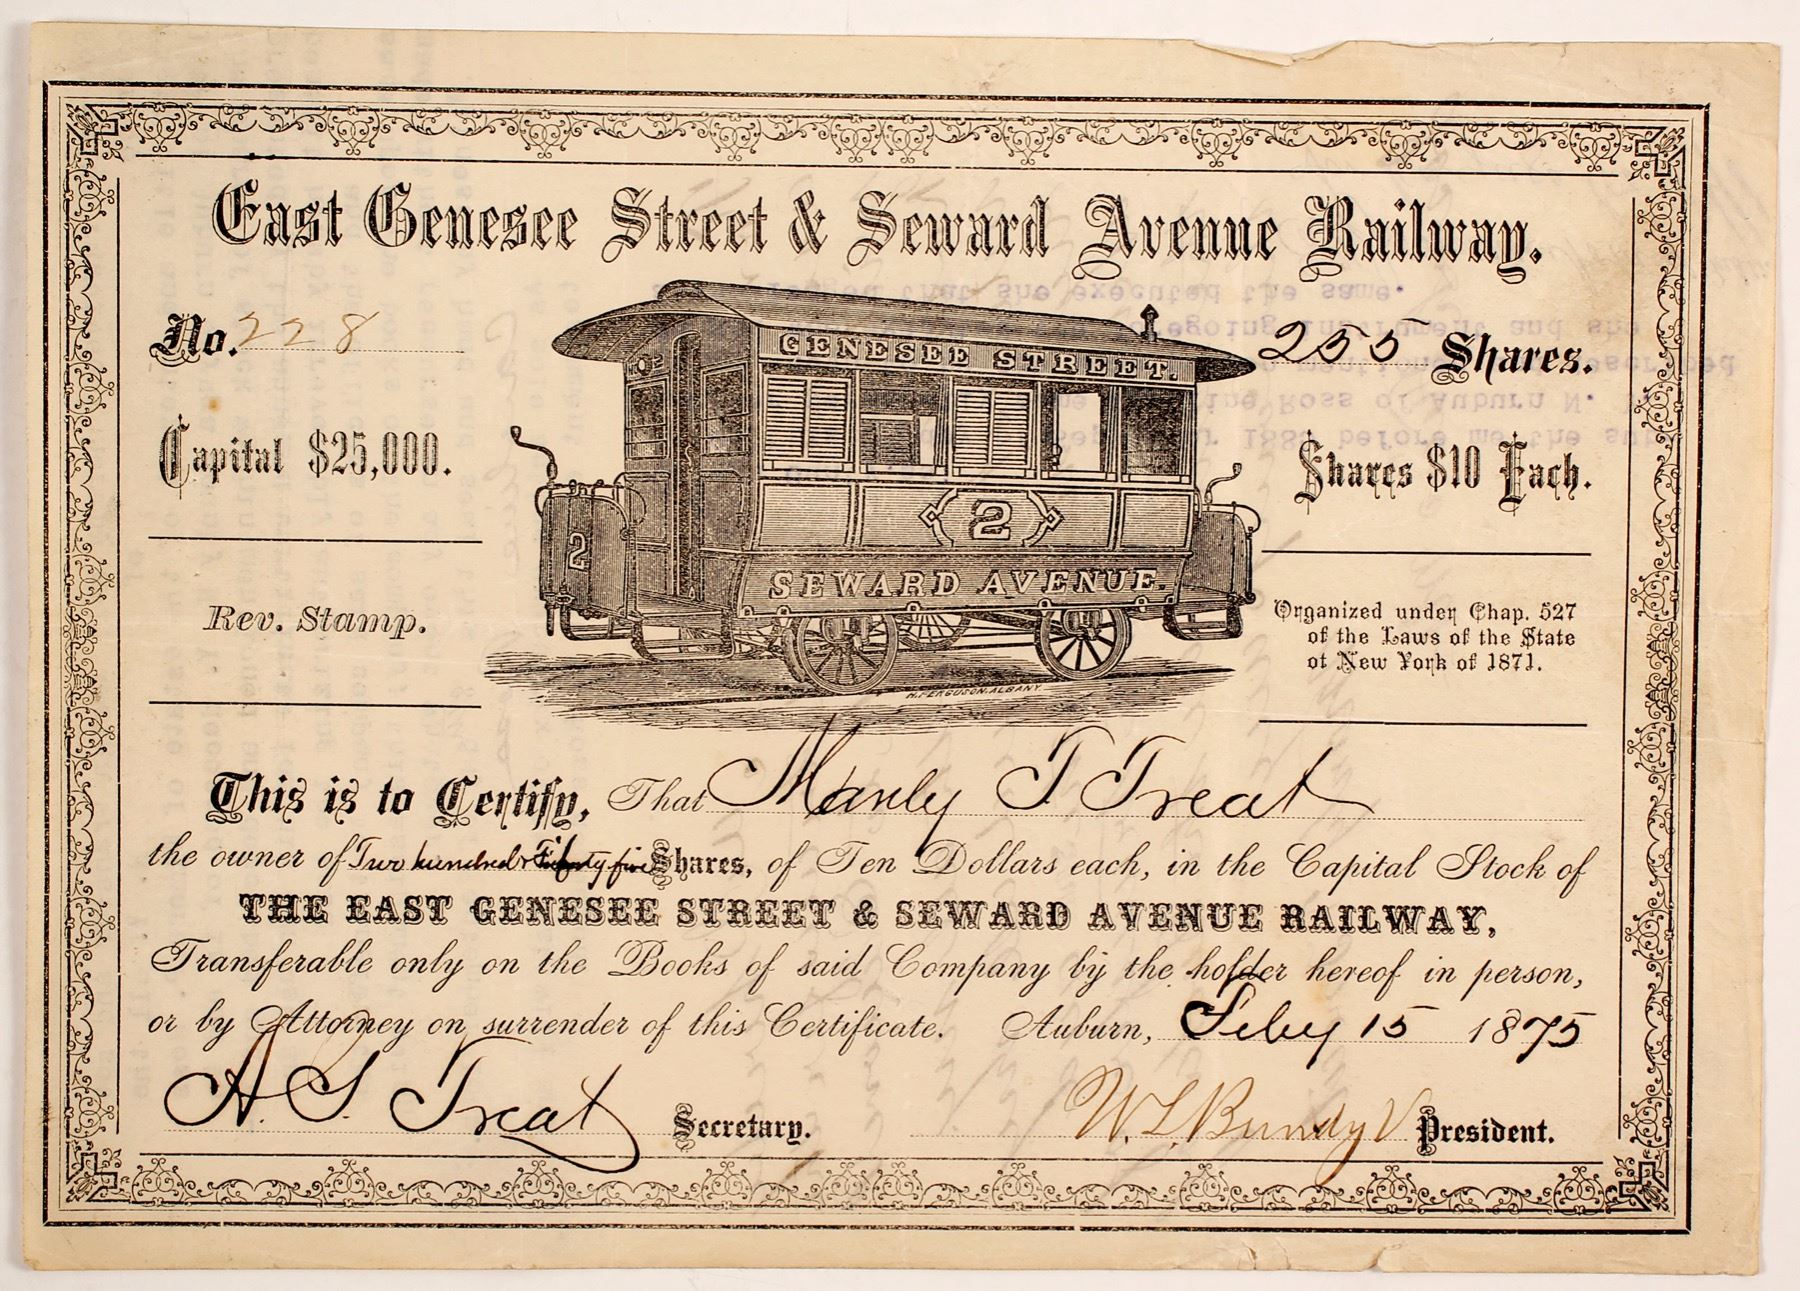 East Genesee Street & Seward Avenue Railway.
No. 228
255 Shares.
Capital $25,000.
Shares $10 Each.
GENESEE STREET.
2
2
SEWARD AVENUE.
Rev. Stamp.
Organized under Chap. 527
of the Laws of the State
of New York of 1871.
H. FERGUSON. ALBANY
This is to Certify, That Manly T Treat
the owner of Two hundred & Fifty five Shares, of Ten Dollars each, in the Capital Stock of
THE EAST GENESEE STREET & SEWARD AVENUE RAILWAY,
Transferable only on the Books of said Company by the holder hereof in person,
or by Attorney on surrender of this Certificate. Auburn, Feby 15 1875
A. S. Treat Secretary. W. L. Bundy V President.